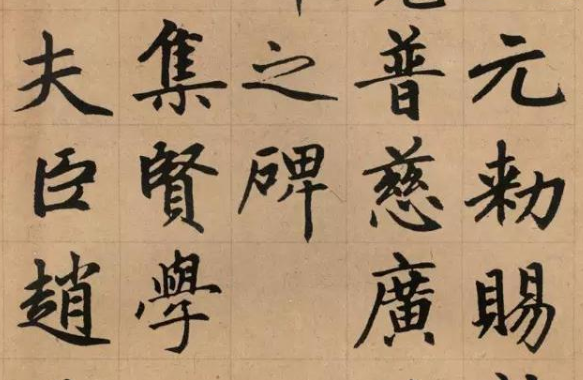 元敕賜
普慈廣
之碑
集賢學
夫臣趙